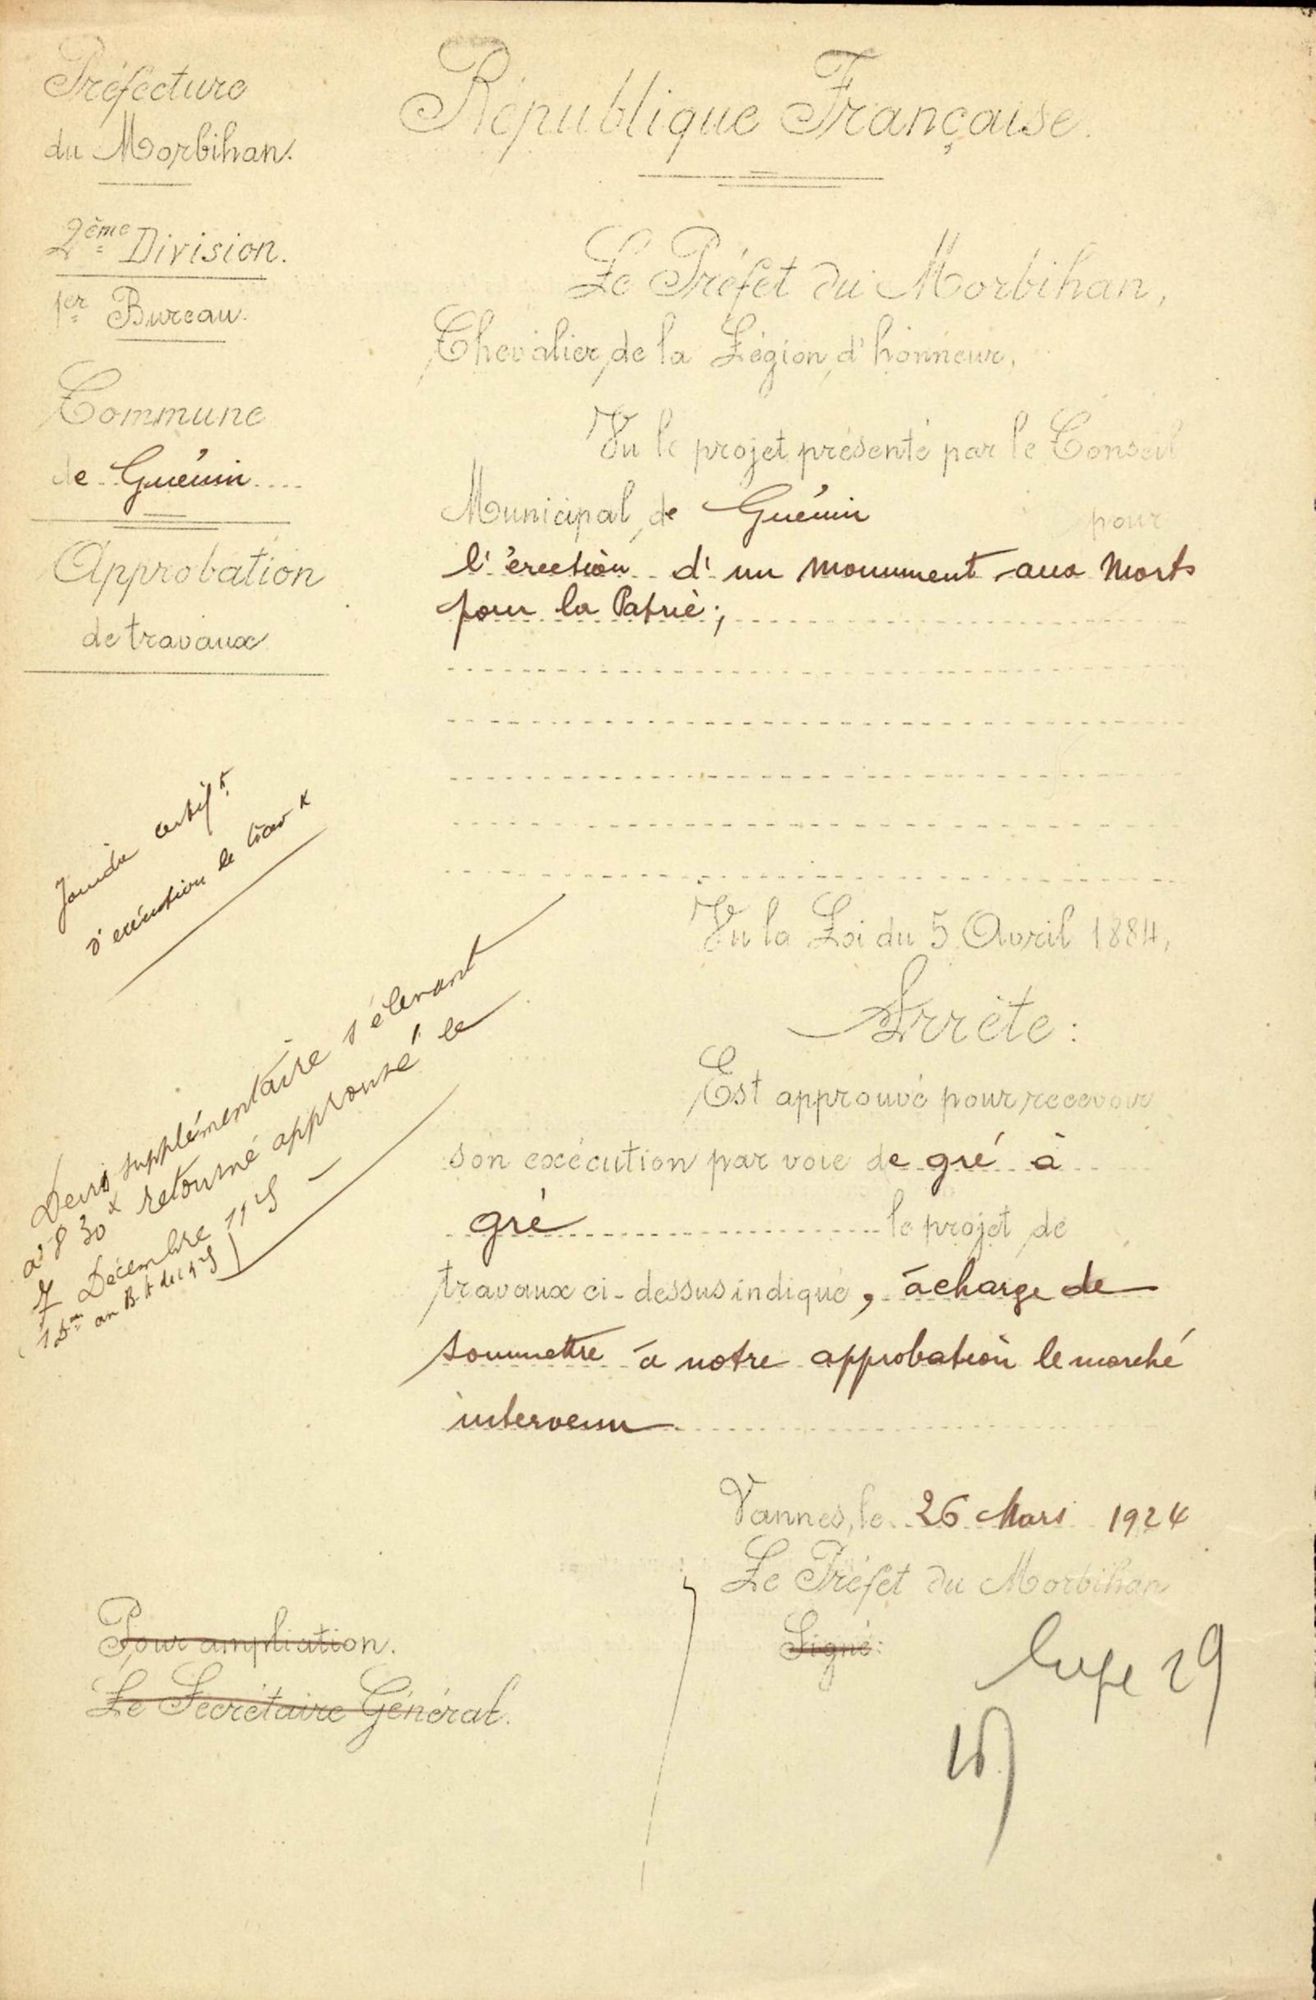 Préfecture
du Morbihan.
2ème Division.
1er Bureau.
Commune
de Guénin
Approbation
de travaux
République Française.
Le Préfet du Morbihan,
Chevalier de la Légion d'honneur,
Vu le projet présenté par le Conseil
Municipal de Guénin pour
l'érection d'un monument aux Morts
pour la Patrie;
Vu la Loi du 5 Avril 1884,
Arrête:
Est approuvé pour recevoir
son exécution par voie de gré à
gré le projet de
travaux ci-dessus indiqué, à charge de
soumettre à notre approbation le marché
intervenu
Vannes, le 26 Mars 1924
Le Préfet du Morbihan
Signé:
Pour ampliation.
Le Secrétaire Général.
Joindre certift
d'exécution de travx
Devis supplémentaire s'élevant
à 830 retourné approuvé le
7 Décembre